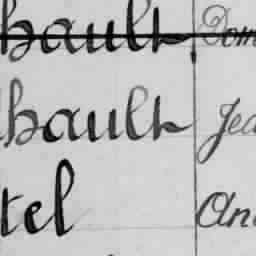 hault Dom
hault Jea
tel An